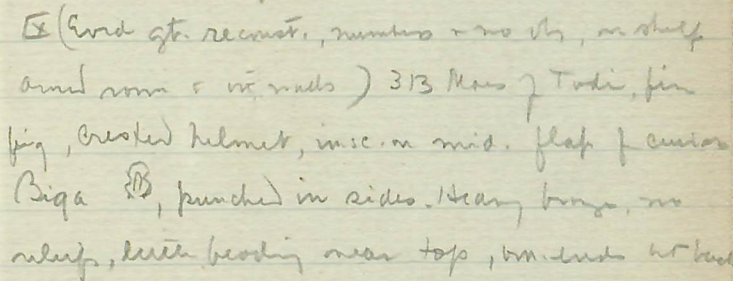 IX (Evid gt. reconst., numbers + no obj, on shelf
around room + in middle) 313 Mars of Todi, fine
fig, crested helmet, insc. on mid. flap of cuirass
Biga, punched in sides. Heavy bronze, no
relief, little beading near top, bm. ends at back